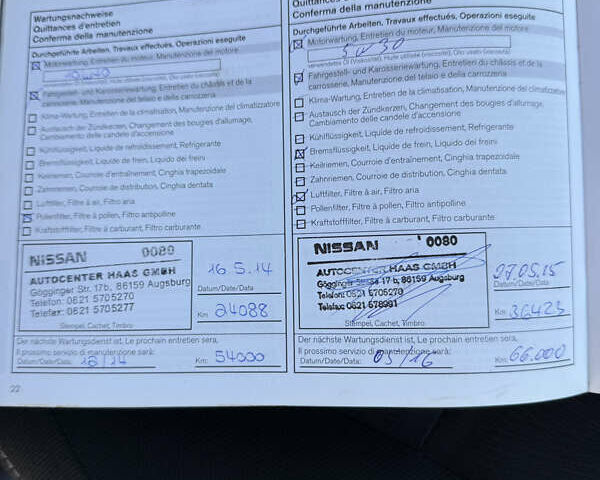 Wartungsnachweise
Quittances d'entretien
Conferma della manutenzione
Durchgeführte Arbeiten, Travaux effectués, Operazioni eseguite
Motorwartung, Entretien du moteur, Manutenzione del motore
Fahrgestell- und Karosseriewartung, Entretien du châssis et de la
carrosserie, Manutenzione del telaio e della carrozzeria
Klima-Wartung, Entretien de la climatisation, Manutenzione del climatizzatore
Austausch der Zündkerzen, Changement des bougies d'allumage,
Cambiamento delle candele d'accensione
Kühlflüssigkeit, Liquide de refroidissement, Refrigerante
Bremsflüssigkeit, Liquide de frein, Liquido dei freini
Keilriemen, Courroie d'entraînement, Cinghia trapezoidale
Zahnriemen, Courroie de distribution, Cinghia dentata
Luftfilter, Filtre à air, Filtro aria
Pollenfilter, Filtre à pollen, Filtro antipolline
Kraftstofffilter, Filtre à carburant, Filtro carburante
NISSAN 0080
AUTOCENTER HAAS GMBH
Gögginger Str. 17b, 86159 Augsburg
Telefon: 0821 5705270
Telefax: 0821 5705277
Stempel, Cachet, Timbro
16.5.14
Datum/Date/Data:
Km: 24088
Der nächste Wartungsdienst ist, Le prochain entretien sera,
Il prossimo servizio di manutenzione sarà:
Datum/Date/Data: Km: 54000
22
Quittances d'entretien
Conferma della manutenzione
Durchgeführte Arbeiten, Travaux effectués, Operazioni eseguite
Motorwartung, Entretien du moteur, Manutenzione del motore
5W30
Fahrgestell- und Karosseriewartung, Entretien du châssis et de la
carrosserie, Manutenzione del telaio e della carrozzeria
Klima-Wartung, Entretien de la climatisation, Manutenzione del
Austausch der Zündkerzen, Changement des bougies d'allumage,
Cambiamento delle candele d'accensione
Kühlflüssigkeit, Liquide de refroidissement, Refrigerante
Bremsflüssigkeit, Liquide de frein, Liquido dei freini
Keilriemen, Courroie d'entraînement, Cinghia trapezoidale
Zahnriemen, Courroie de distribution, Cinghia dentata
Luftfilter, Filtre à air, Filtro aria
Pollenfilter, Filtre à pollen, Filtro antipolline
Kraftstofffilter, Filtre à carburant, Filtro carburante
NISSAN 0080
AUTOCENTER HAAS GMBH
Gögginger Str. 17 b, 86159 Augsburg
Telefon: 0821 5705270
Telefax: 0821 578991
Stempel, Cachet, Timbro
27.05.15
Datum/Date/Data:
Km: 36423
Der nächste Wartungsdienst ist, Le prochain entretien sera,
Il prossimo servizio di manutenzione sarà:
Datum/Date/Data: 05/16 Km: 66.000